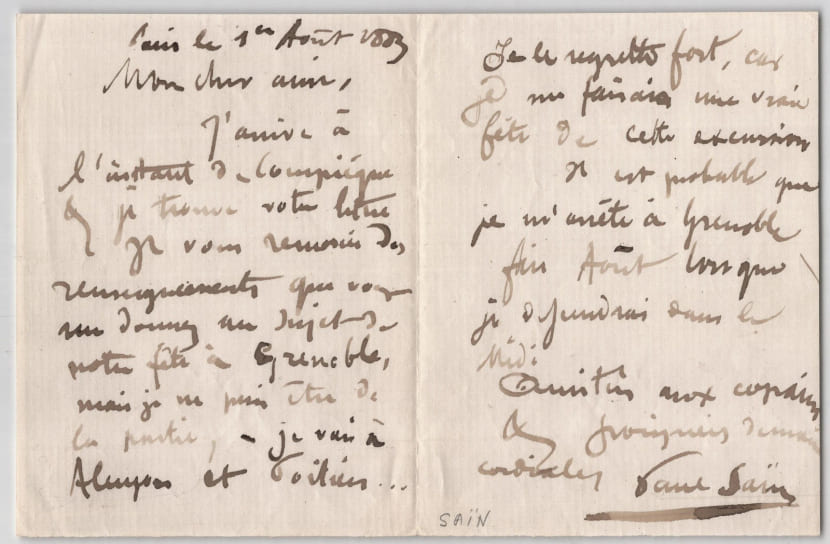 Paris le 1er Août 1883
Mon cher ami,
J'arrive à
l'instant de Compiègne
& je trouve votre lettre
Je vous remercie des
renseignements que vous
me donnez au sujet de
notre fête à Grenoble,
mais je ne puis être de
la partie, - je vais à
Alençon et Poitiers...
Je le regrette fort, car
je me faisais une vraie
fête de cette excursion
Il est probable que
je m'arrête à Grenoble
fin Août lorsque
je descendrai dans le
Midi
Amitiés aux copains
& poignées de main
cordiales Paul Saïn
SAÏN